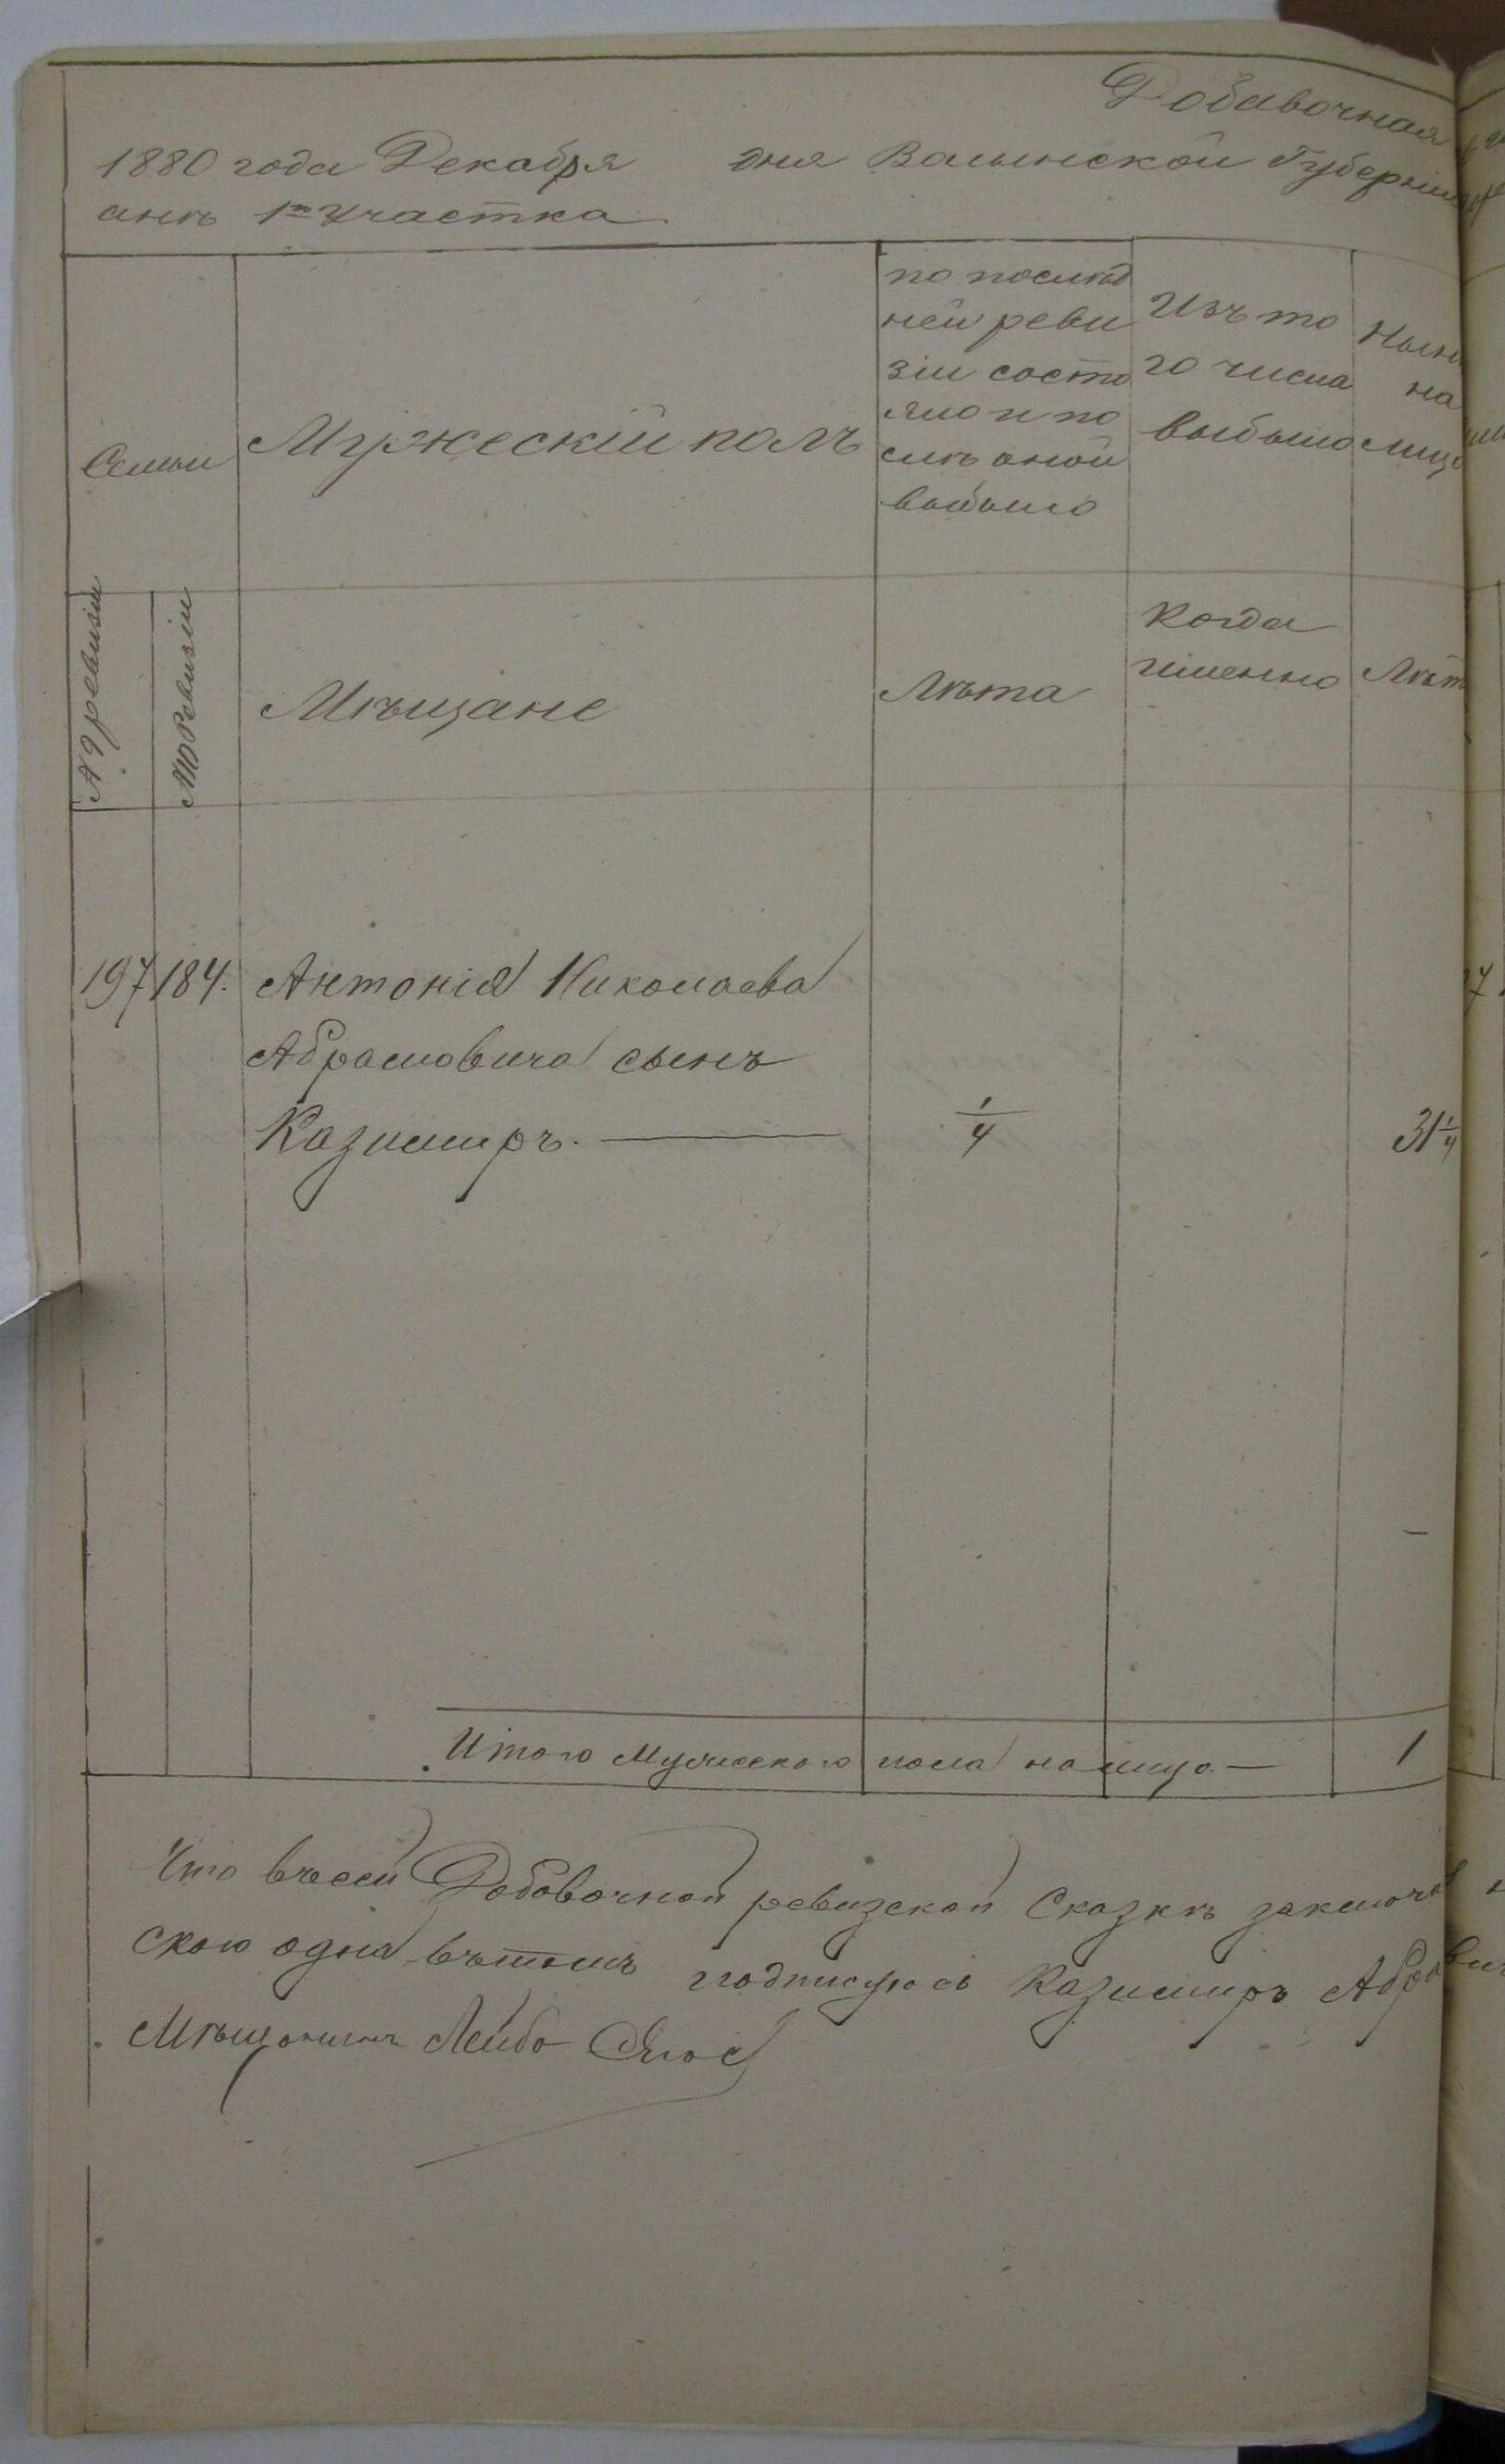 Добавочная
1880 года Декабря дня Валынской Губерніи
анъ 1го Участка
Семьи
Мужескій полъ
по послѣд
ней реви
зіи состо
яло и по
слѣ оной
выбыло
Изъ то
го числа
выбыло
Нынѣ
на
лицо
№ 9 ревизіи
№ 10 Ревизіи
Мѣщане
Лѣта
Когда
именно
Лѣт
197 184. Антонія Николаева
Абрамовича сынъ
Казимиръ. — 1/4 31 1/4
Итого Мужескаго пола налицо — 1
Что въ сей Добовочной ревизской Сказкѣ заключа
скою одна въ томъ подписуюсь Казимиръ Абра
Мѣщанинъ Лейба